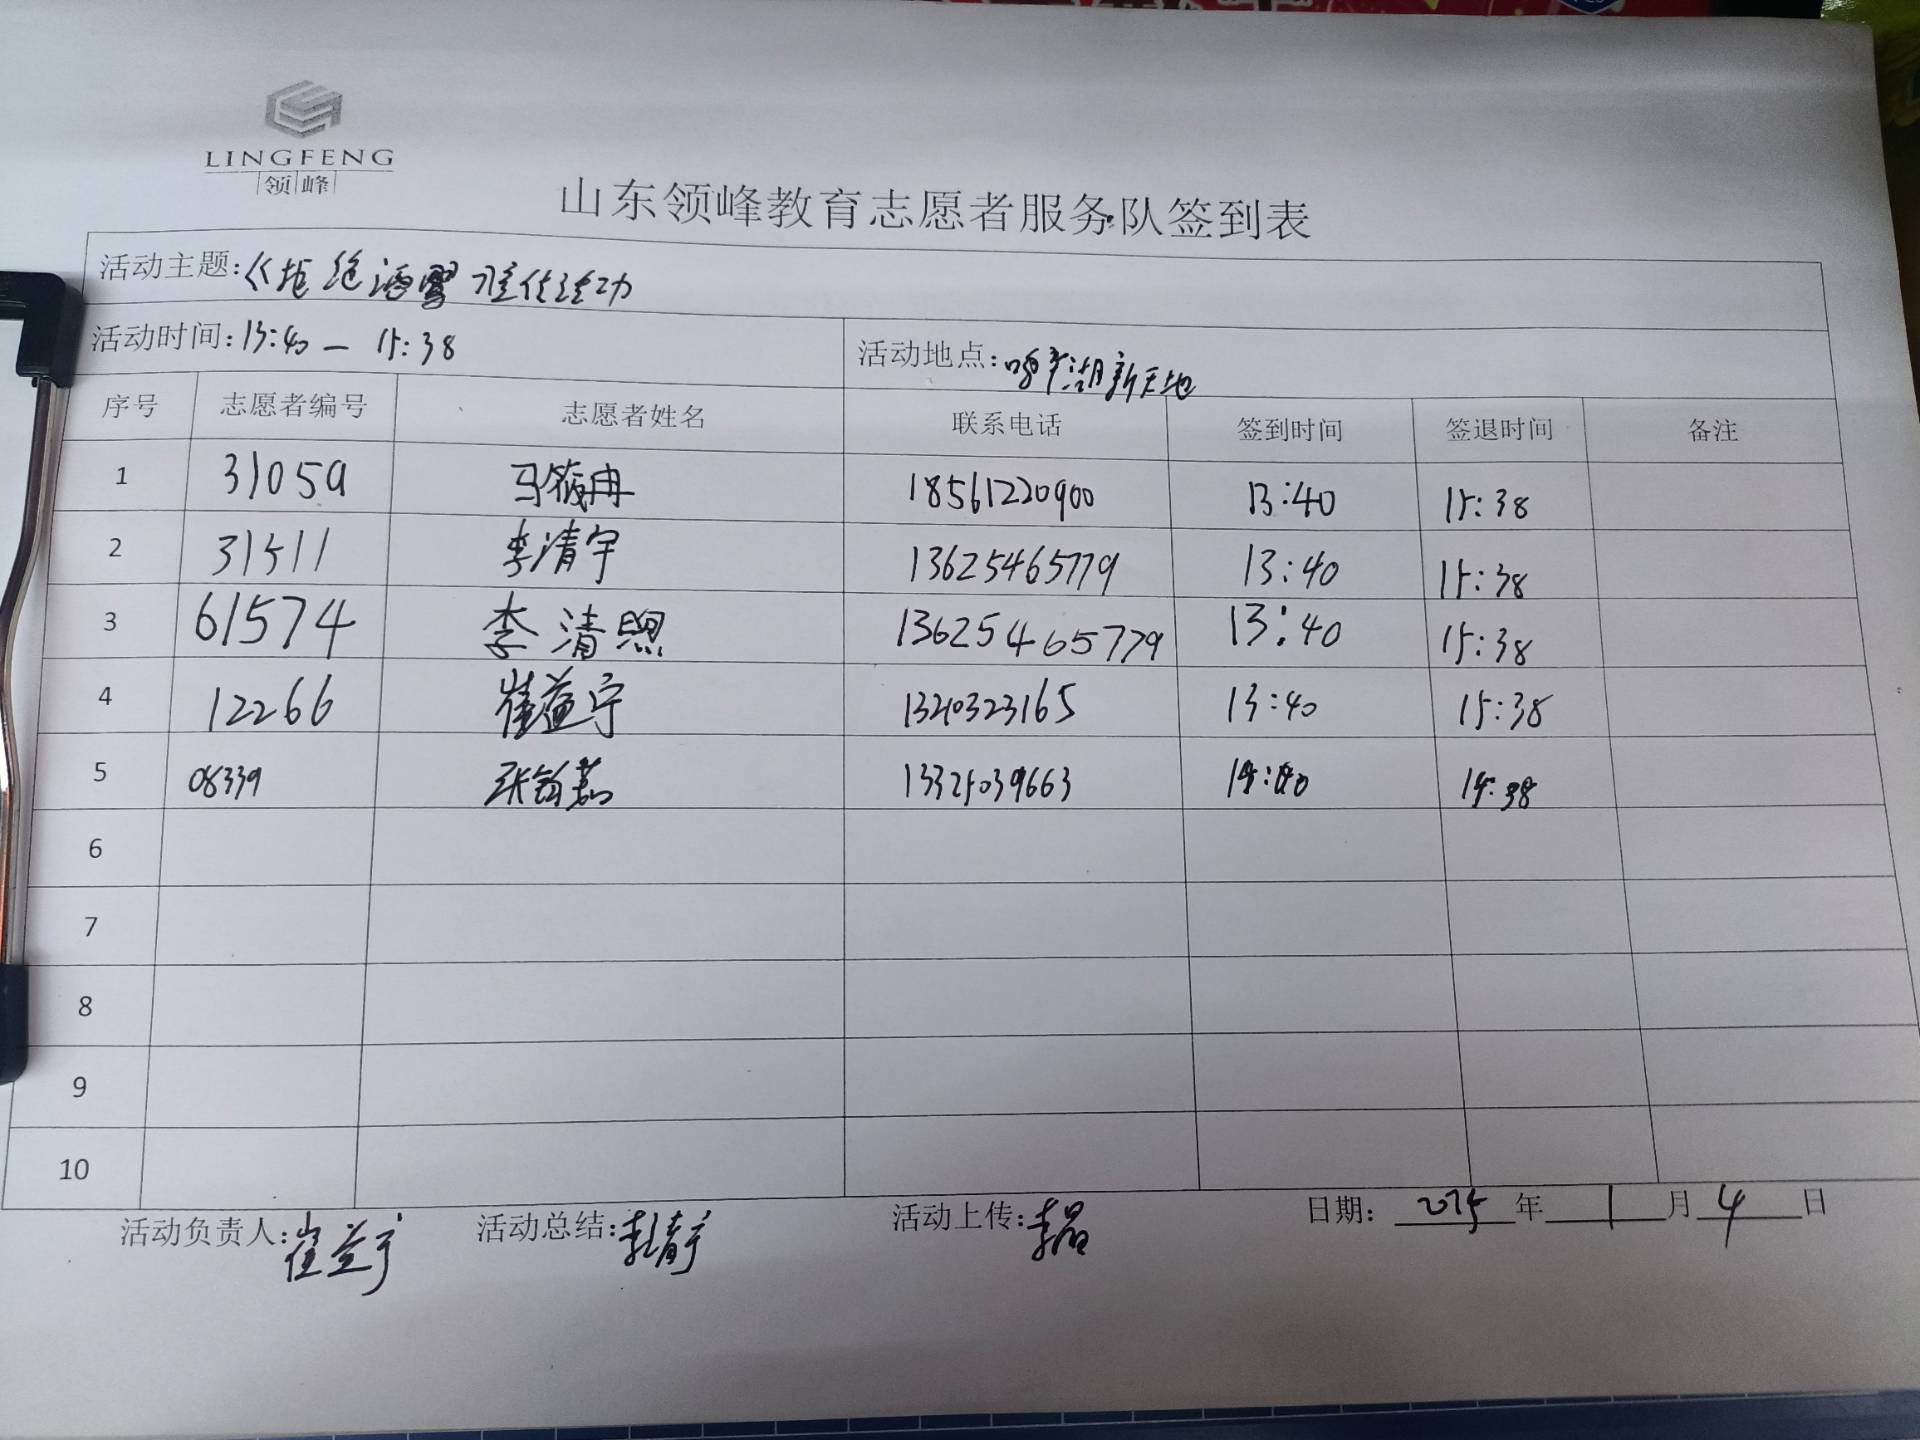 LINGFENG
领峰
山东领峰教育志愿者服务队签到表
活动主题:《拒绝酒驾
活动时间:13:40 — 15:38 活动地点: 湖新天地
序号 志愿者编号 志愿者姓名 联系电话 签到时间 签退时间 备注
1 31059 马筱冉 18561220900 13:40 15:38
2 31511 李清宇 13625465779 13:40 15:38
3 61574 李清照 13625465779 13:40 15:38
4 12266 崔益宁 13210323165 13:40 15:38
5 08339 张 13325039663
6
7
8
9
10
活动负责人:崔益宁 活动总结:李清宇 活动上传:李 日期: 2025年 1月 4日